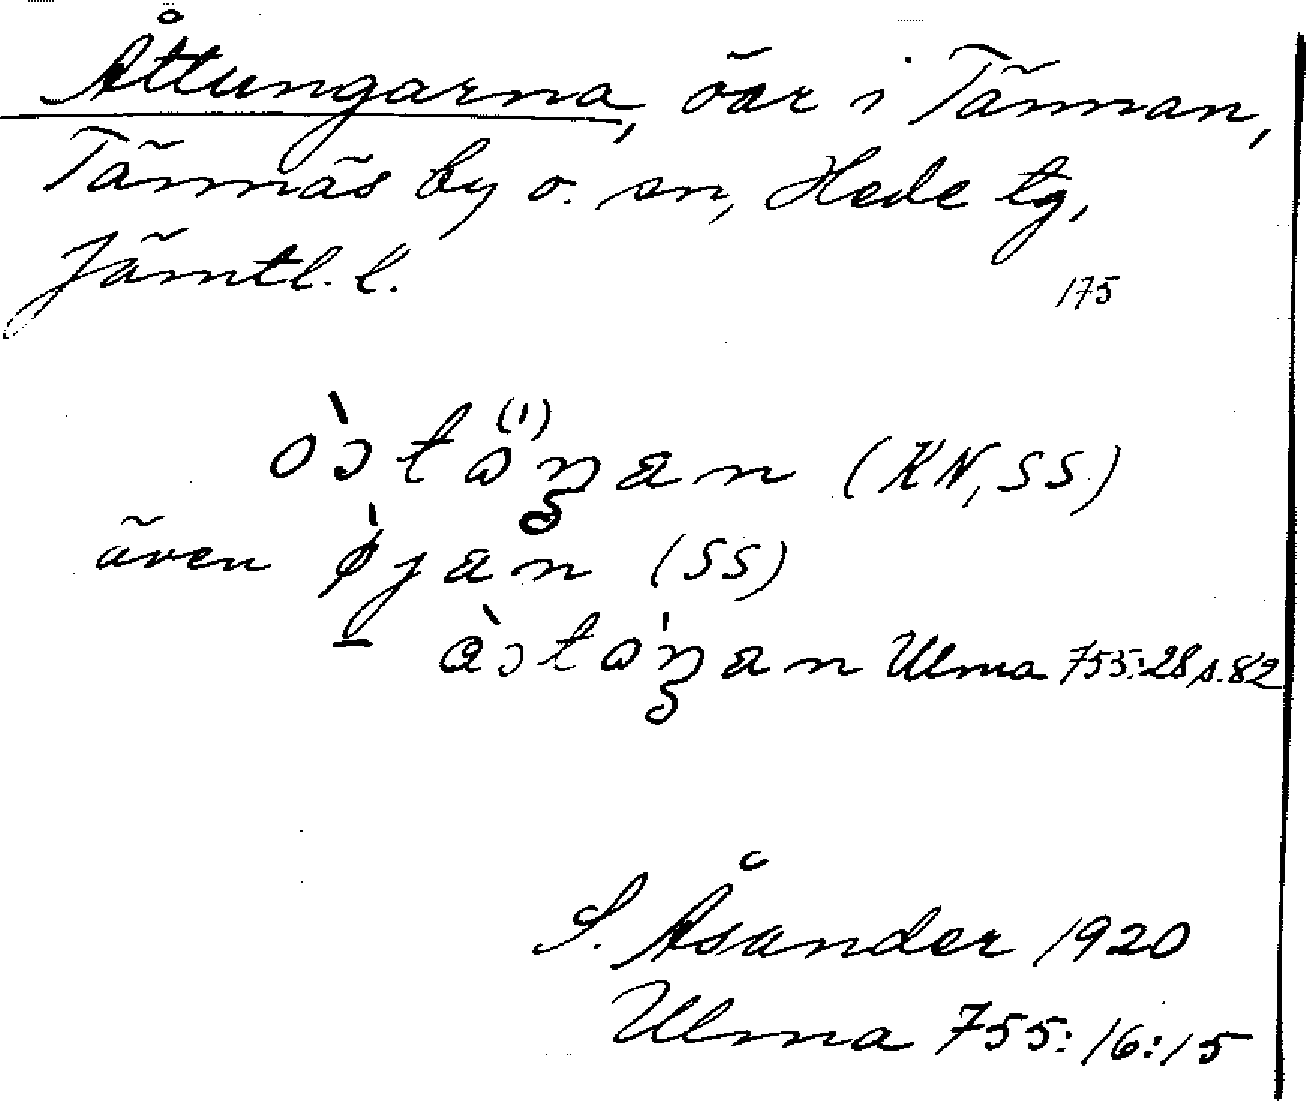 Åttungarna, öar i Tännan,
Tännäs by o. sn, Hede tg,
Jämtl. l.
175
(KN, SS)
även (SS)
Ulma 755:28 s. 82
S. Åsander 1920
Ulma 755:16:15